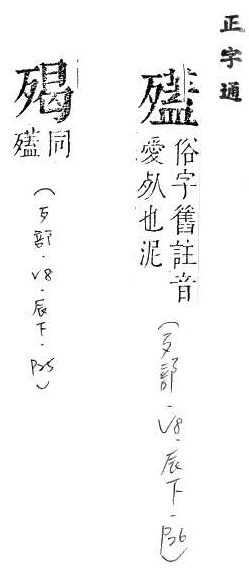 正字通
俗字舊註音
愛𣦸也泥
(歹部.V8.辰下.P26)
同
(歹部.V8.辰下.P25)